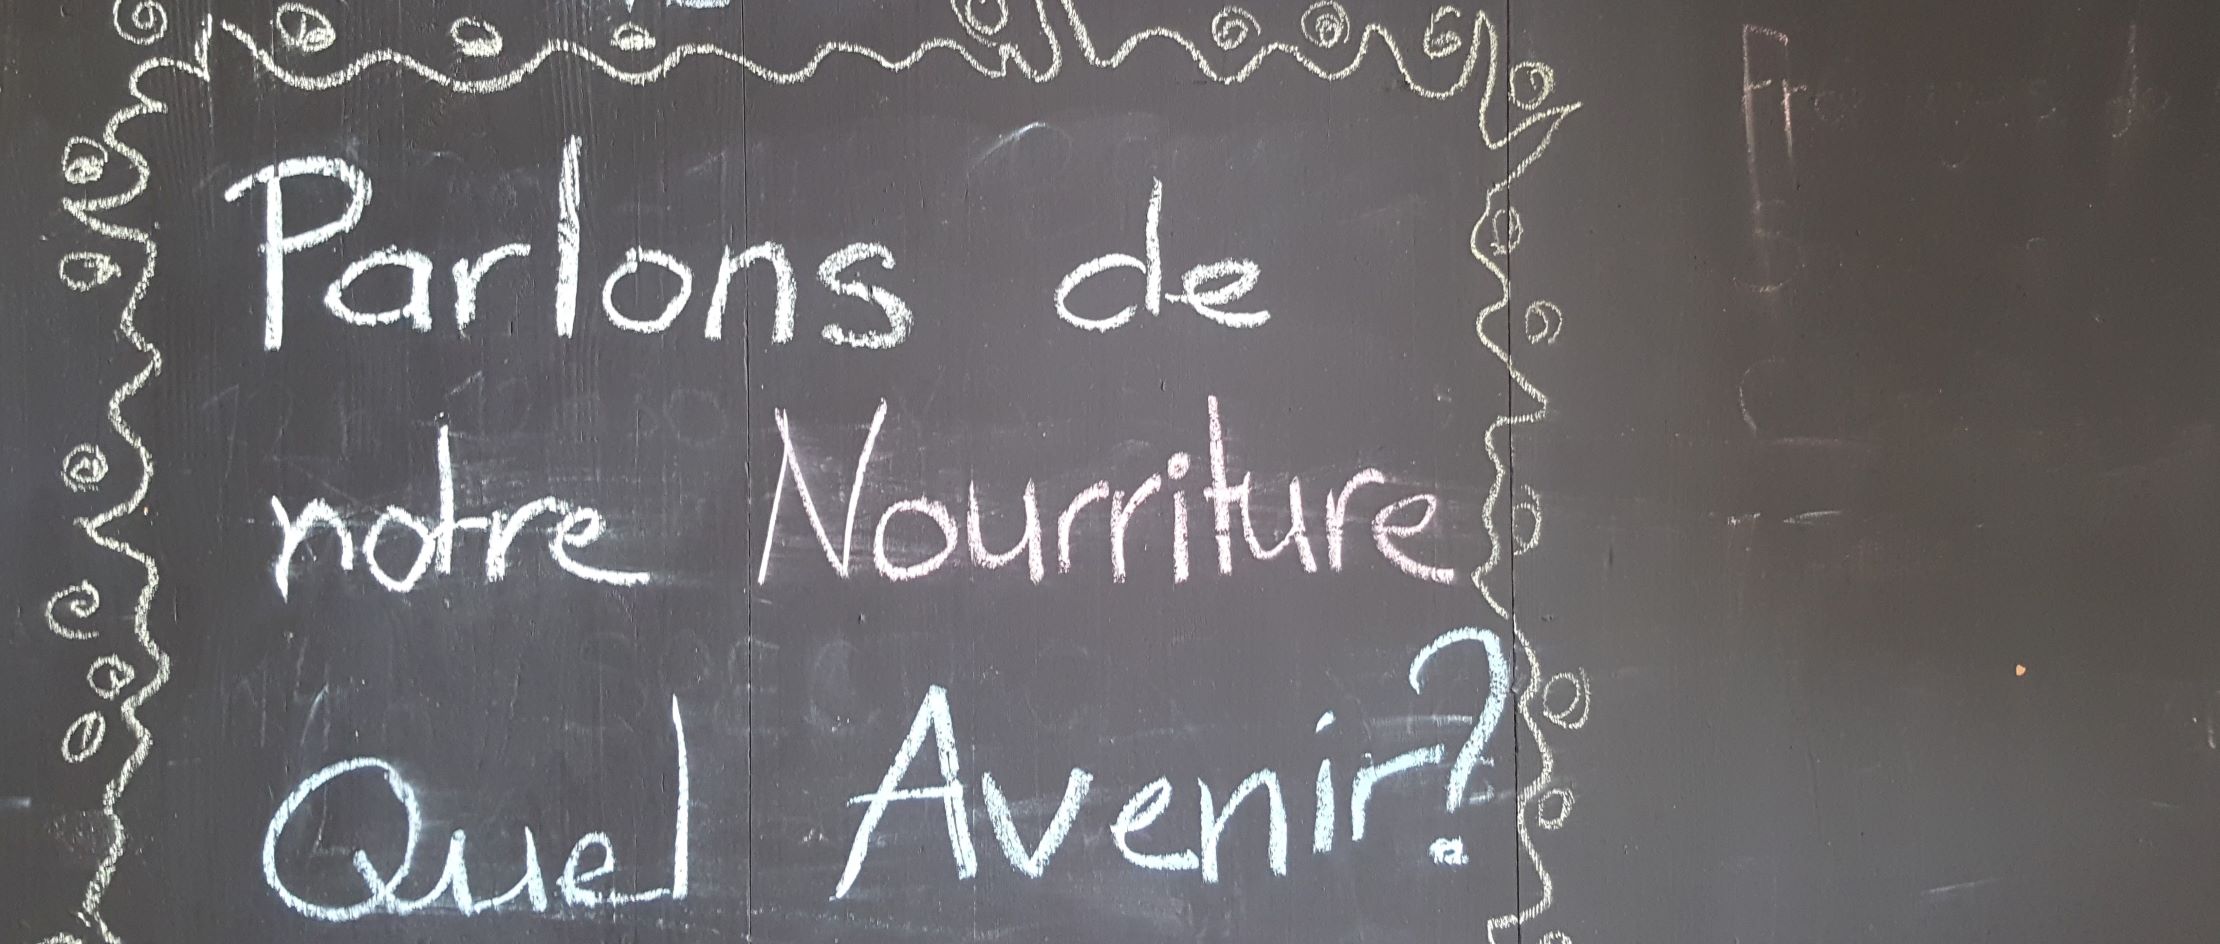 Parlons de
notre Nourriture
Quel Avenir?